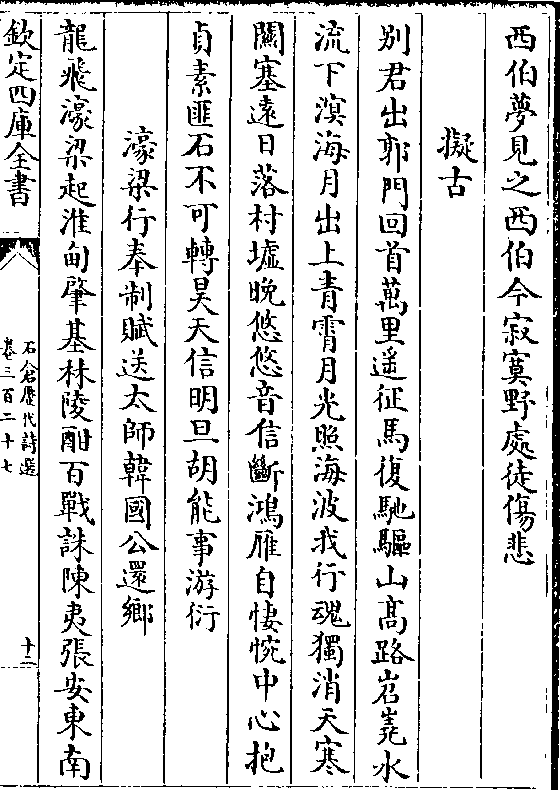 西伯夢見之西伯今寂寞野處徒傷悲
擬古
别君出郭門回首萬里遥征馬復馳驅山髙路岧嶤水
流下溟海月出上青霄月光照海波我行魂獨消天寒
關塞逺日落村墟晩悠悠音信斷鴻雁自悽惋中心抱
貞素匪石不可轉昊天信明旦胡能事游衍
濠梁行奉制賦送太師韓國公還鄉
龍飛濠梁起淮甸肇基林陵酣百戰誅陳夷張安東南
欽定四庫全書
石倉歷代詩選
卷三百二十七
十二